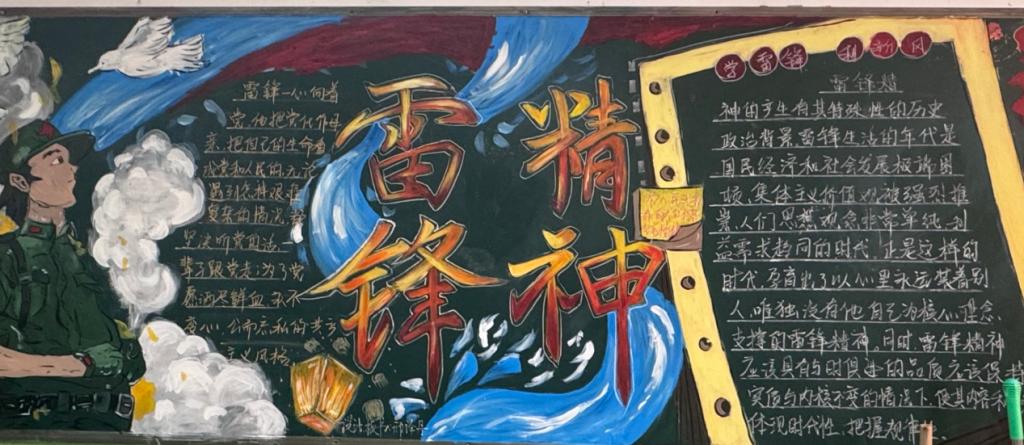 雷锋一心向着
党他把党比作母
亲把自己的生命看
坚决听党的话一
辈子跟党走为了党
愿洒尽鲜血永不
变心公而忘私的共产
主义风格
雷锋
精神
学雷锋 树新风
雷锋精
神的产生有其特殊性的历史
政治背景雷锋生活的年代是
国民经济和社会发展极端困
难,集体主义价值观被强烈推
崇人们思想观念非常单纯,利
益需求趋同的时代 正是这样的
时代,孕育出了以心里永远装着别
人,唯独没有他自己为核心理念
支撑的雷锋精神,同时,雷锋精神
应该具有与时俱进的品质应该保持
实质与内核不变的情况下,使其内容
体现时代性,把握规律